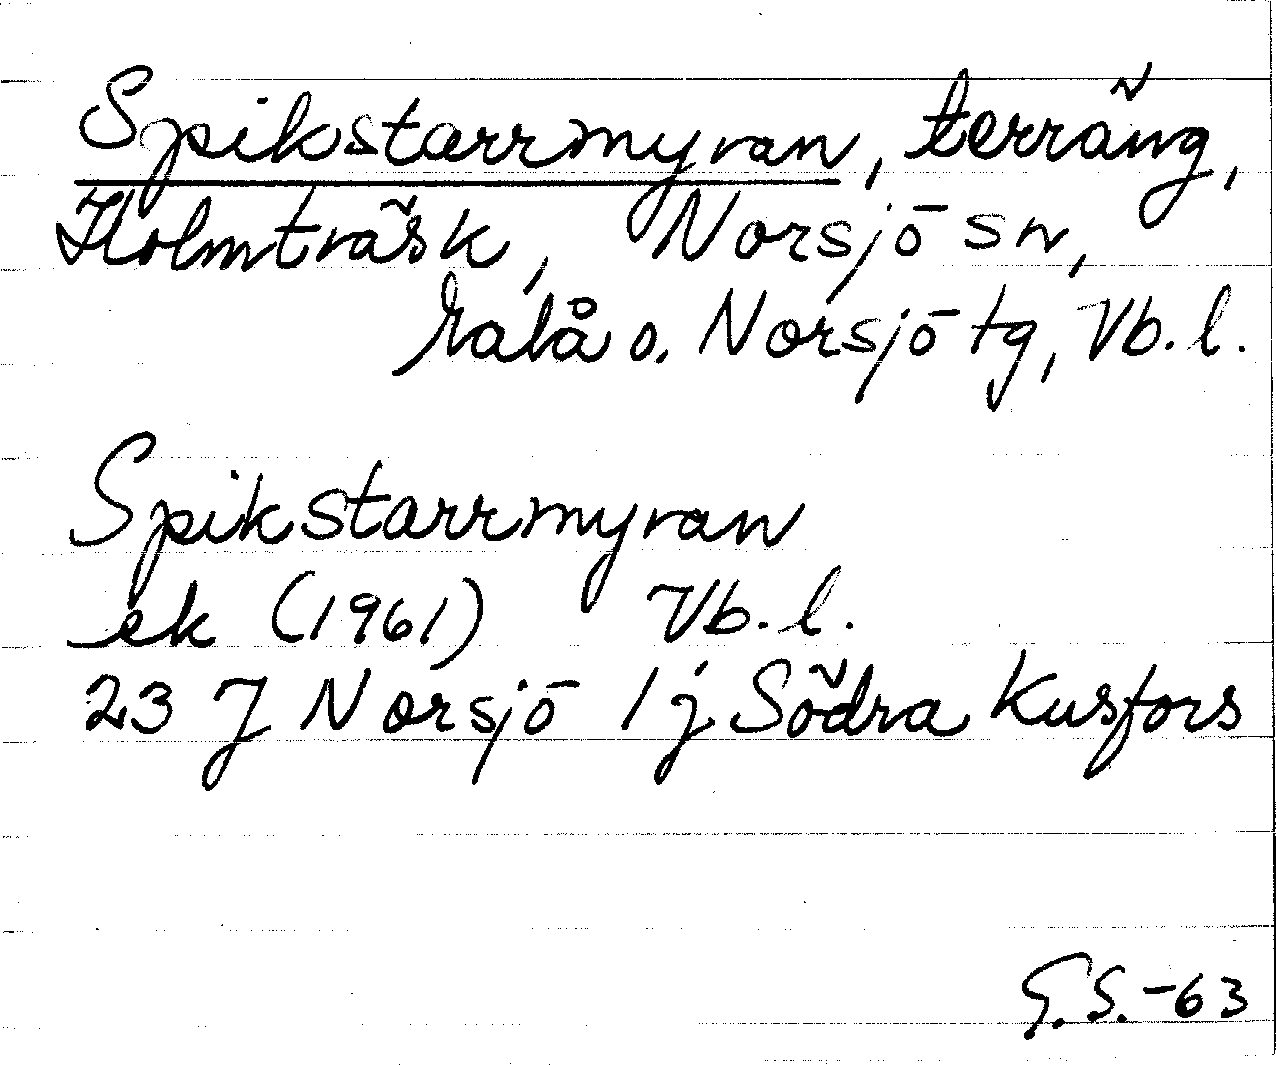 Spikstarrmyran, terräng,
Holmträsk, Norsjö sn,
Malå o. Norsjö tg, Vb. l.
Spikstarrmyran
ek (1961) Vb. l.
23 J Norsjö 1 j Södra Kusfors
G. S. -63